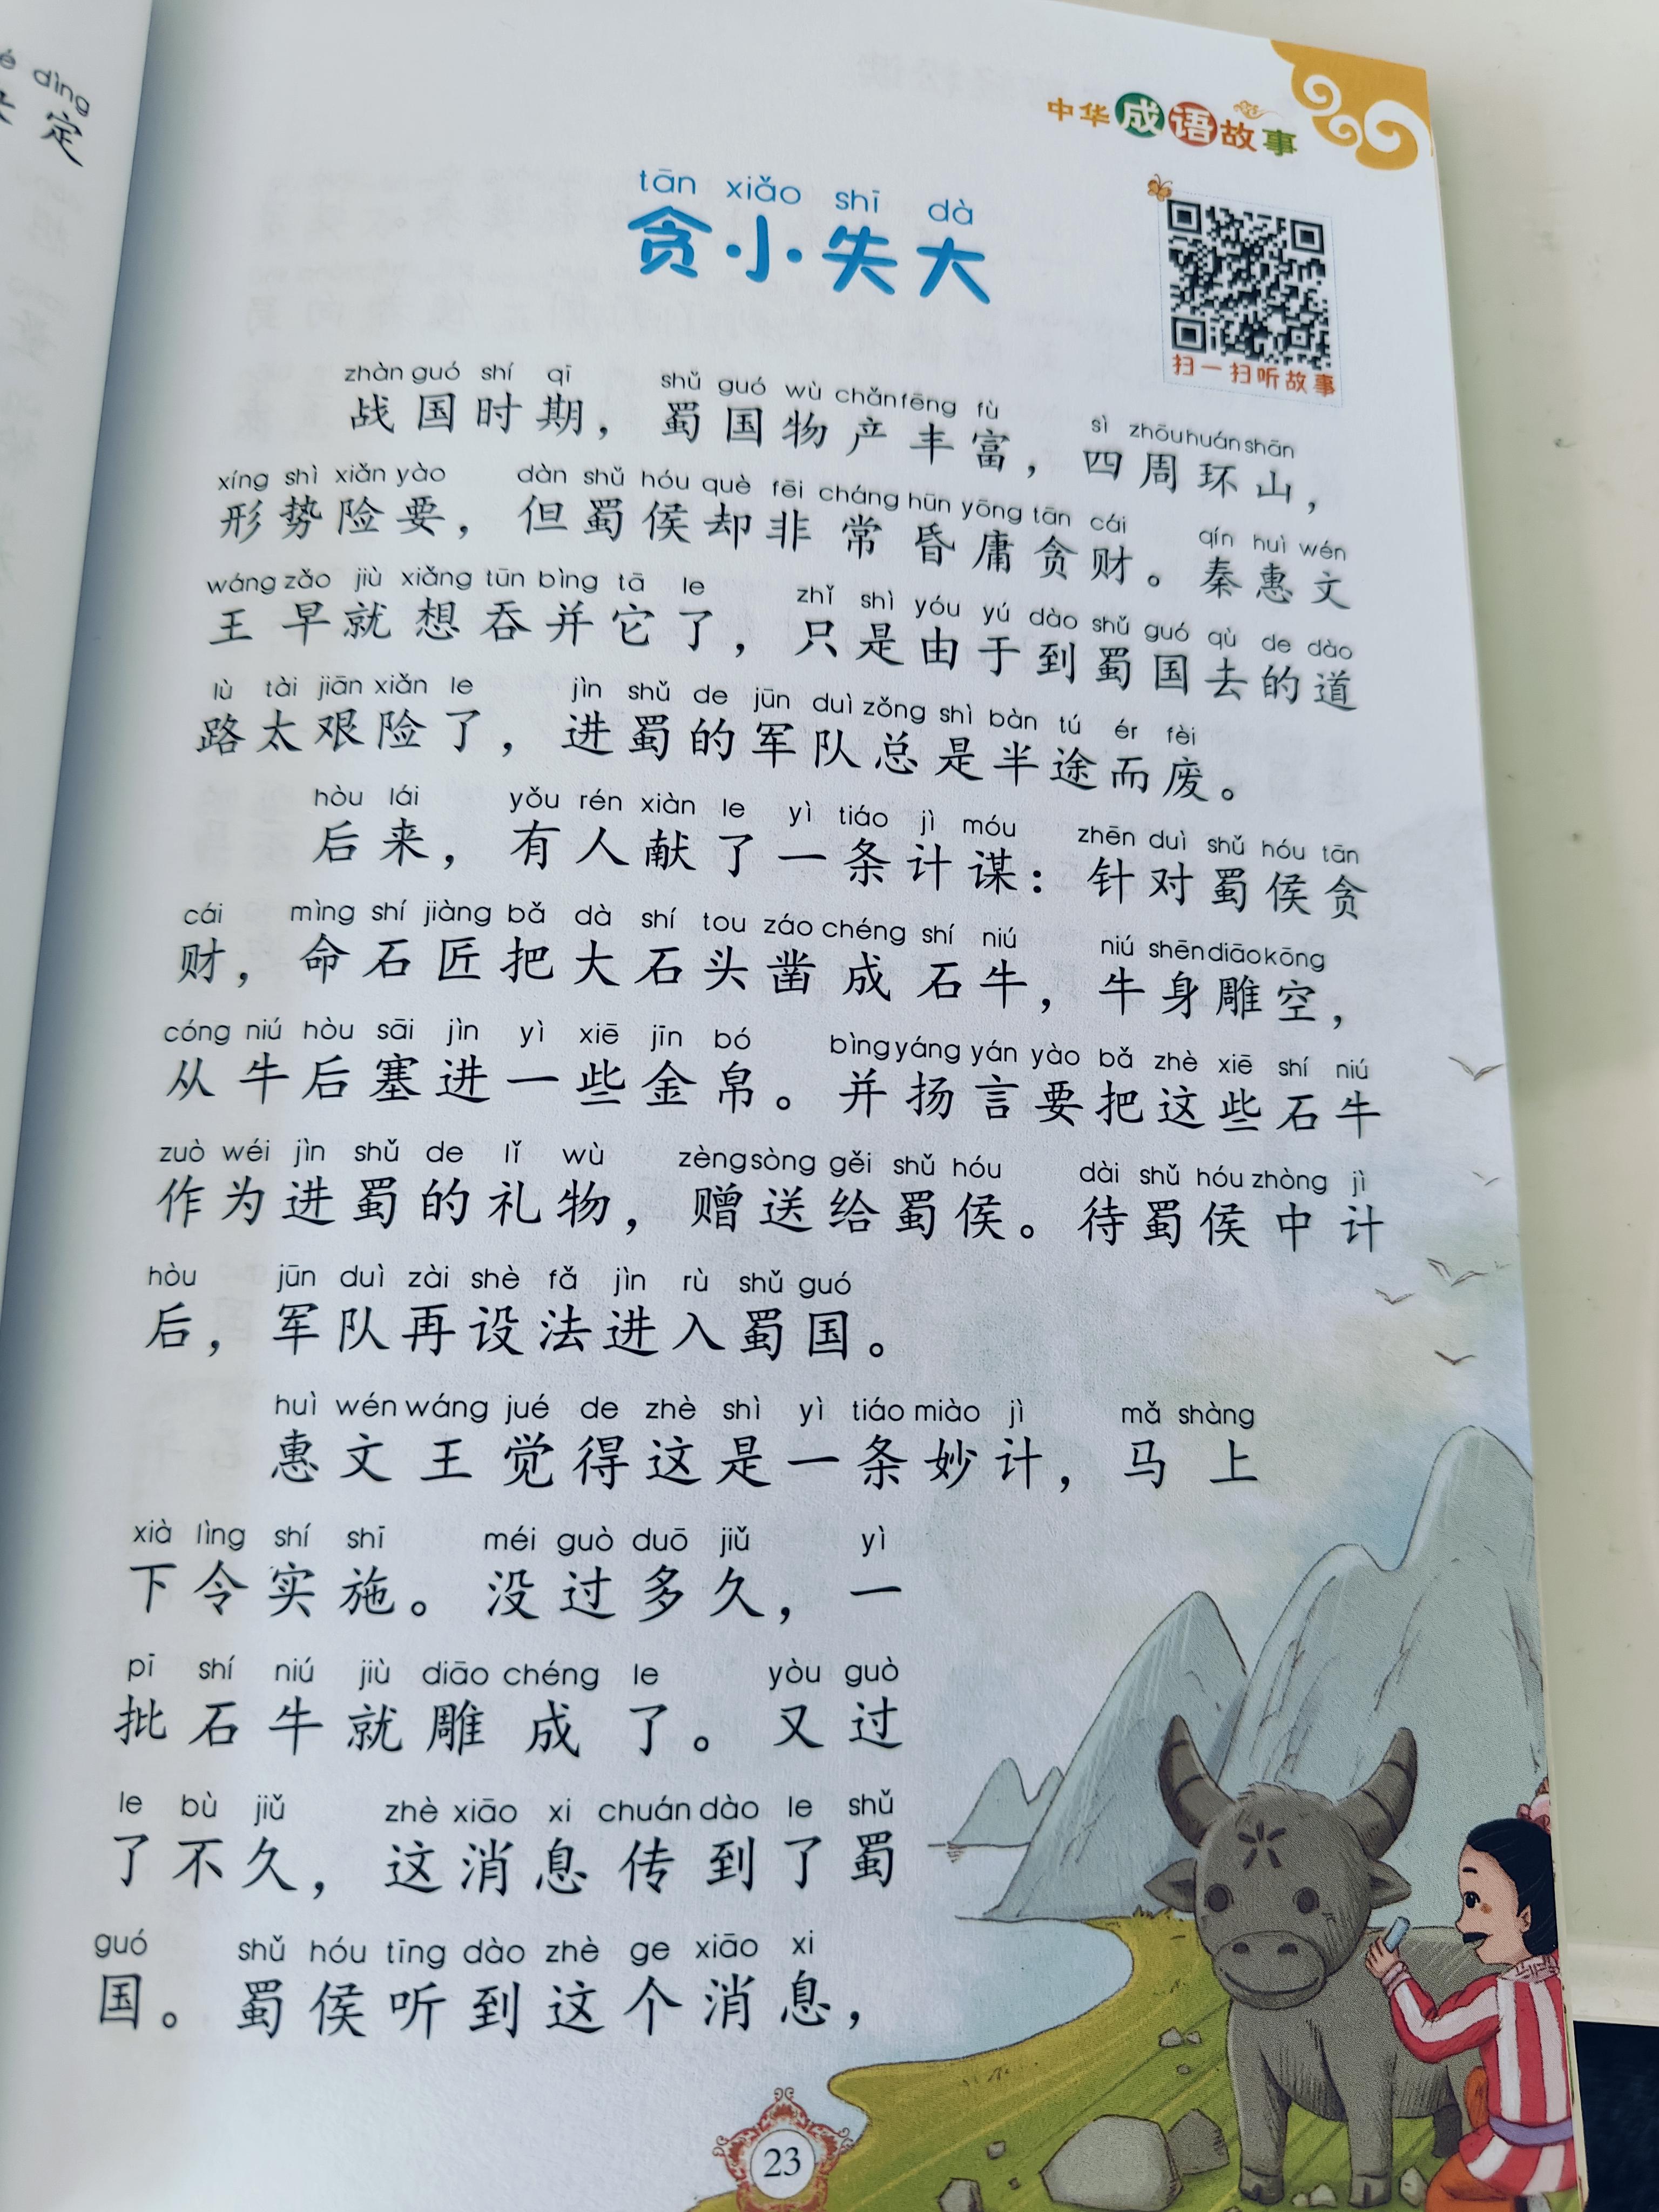 dìng
定
中华成语故事
tān xiǎo shī dà
贪小失大
扫一扫听故事
zhàn guó shí qī shǔ guó wù chǎn fēng fù sì zhōu huán shān
战国时期，蜀国物产丰富，四周环山，
xíng shì xiǎn yào dàn shǔ hóu què fēi cháng hūn yōng tān cái qín huì wén
形势险要，但蜀侯却非常昏庸贪财。秦惠文
wáng zǎo jiù xiǎng tūn bìng tā le zhǐ shì yóu yú dào shǔ guó qù de dào
王早就想吞并它了，只是由于到蜀国去的道
lù tài jiān xiǎn le jìn shǔ de jūn duì zǒng shì bàn tú ér fèi
路太艰险了，进蜀的军队总是半途而废。
hòu lái yǒu rén xiàn le yì tiáo jì móu zhēn duì shǔ hóu tān
后来，有人献了一条计谋：针对蜀侯贪
cái mìng shí jiàng bǎ dà shí tou záo chéng shí niú niú shēn diāo kōng
财，命石匠把大石头凿成石牛，牛身雕空，
cóng niú hòu sāi jìn yì xiē jīn bó bìng yáng yán yào bǎ zhè xiē shí niú
从牛后塞进一些金帛。并扬言要把这些石牛
zuò wéi jìn shǔ de lǐ wù zèng sòng gěi shǔ hóu dài shǔ hóu zhòng jì
作为进蜀的礼物，赠送给蜀侯。待蜀侯中计
hòu jūn duì zài shè fǎ jìn rù shǔ guó
后，军队再设法进入蜀国。
huì wén wáng jué de zhè shì yì tiáo miào jì mǎ shàng
惠文王觉得这是一条妙计，马上
xià lìng shí shī méi guò duō jiǔ yì
下令实施。没过多久，一
pī shí niú jiù diāo chéng le yòu guò
批石牛就雕成了。又过
le bù jiǔ zhè xiāo xi chuán dào le shǔ
了不久，这消息传到了蜀
guó shǔ hóu tīng dào zhè ge xiāo xi
国。蜀侯听到这个消息，
23